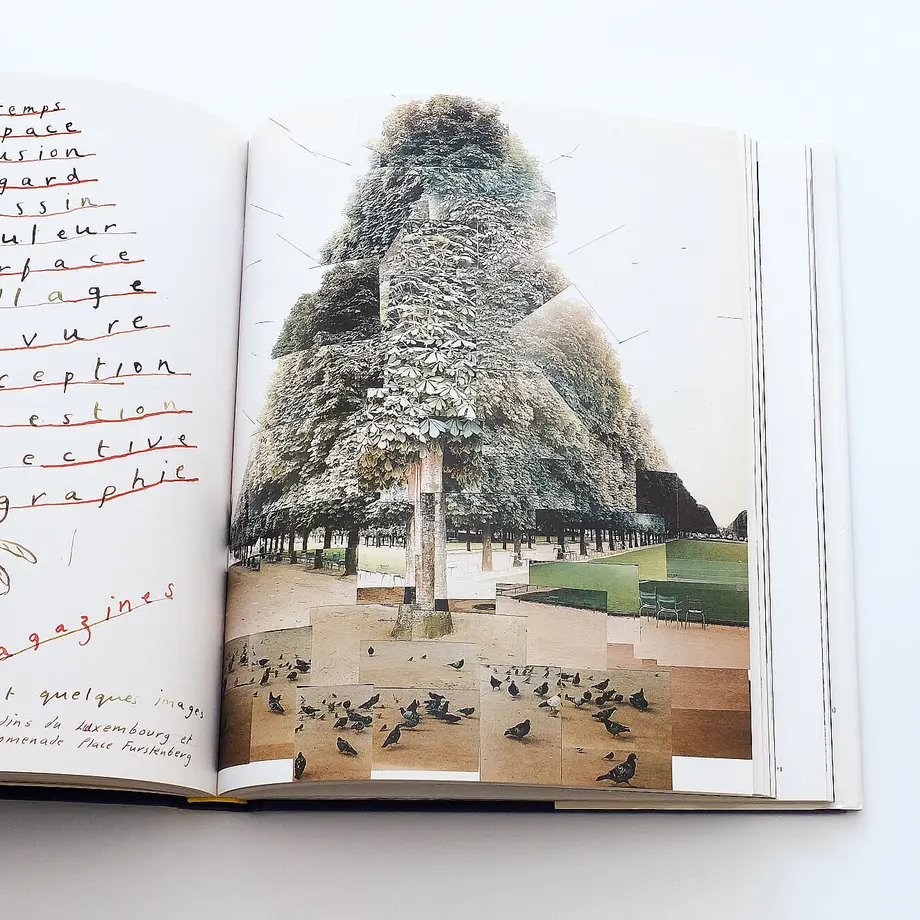 emps
pace
usion
gard
ssin
uleur
rface
llage
vure
ception
estion
ective
graphie
agazines
t quelques images
dins du Luxembourg et
omenade Place Furstenberg